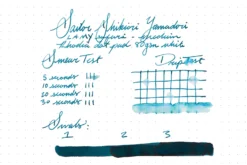 Sailor Shikiori Yamadori
Rhodia dot pad 80gsm white
Smear Test
Drip Test
5 seconds
10 seconds
20 seconds
30 seconds
Swabs:
1 2 3